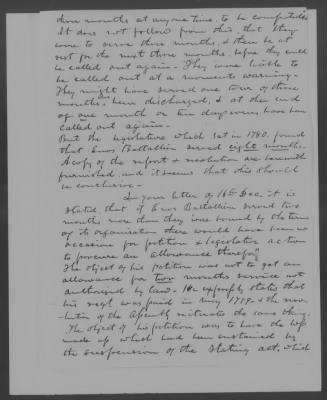 three months at any one time, to be computed &c
It does not follow from this, that they
were to serve three months, & then be at
rest for the next three months, before they could
be called out again. They were liable to
be called out at a moments warning.
They might have served one tour of three
months, been discharged, & at the end
of one month or ten days even have been
called out again.
But the legislature which sat in 1780. found
that Enos Battalion served eight months.
A copy of the report & resolution are herewith
furnished, and it seems that this should
be conclusive.
In your letter of 16th Dec. it is
stated that if Enos Battalion served two
months more than they were bound by the terms
of its organization there would have been no
occasion for petition & legislative action
to procure an allowance therefor"
The object of his petition was not to get an
allowance for two months service not
authorized by law. He expressly states that
his regt was paid in May 1779. & the
of the Assembly the same thing.
The object of his petition was to have the
made up which had been sustained by
the suspension of the Stating act, which